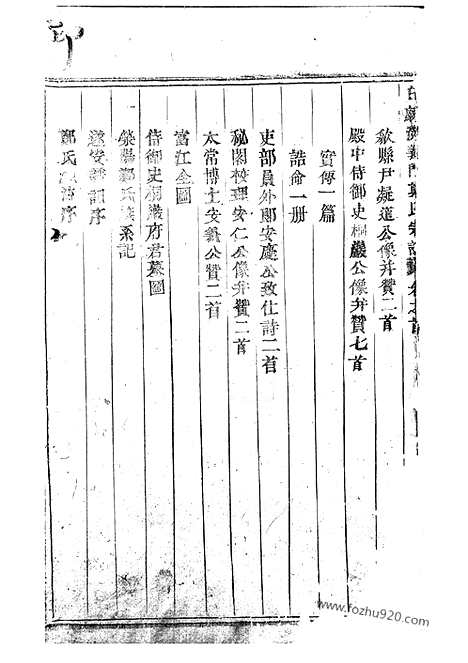 義門鄭氏宗譜
歙縣尹凝道公像并贊二首
殿中侍御史桐巖公像并贊七首
實傳一篇
誥命一册
吏部員外郎安慶公致仕詩二首
秘閣校理安仁公像并贊二首
太常博士安公贊二首
富江全圖
侍御史桐巖府君墓圖
滎陽鄭氏族系記
遂安譜記序
鄭氏序
www.fozhu920.com